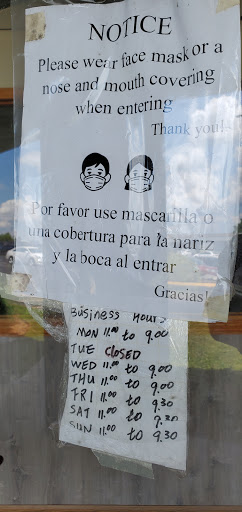 NOTICE
Please wear face mask or a
nose and mouth covering
when entering
Thank you!
Por favor use mascarilla o
una cobertura para la nariz
y la boca al entrar
Gracias!
Business Hours
MON 11.00 to 9.00
TUE CLOSED
WED 11.00 to 9.00
THU 11.00 to 9.00
FRI 11.00 to 9.30
SAT 11.00 to 9.30
SUN 11.00 to 9.30